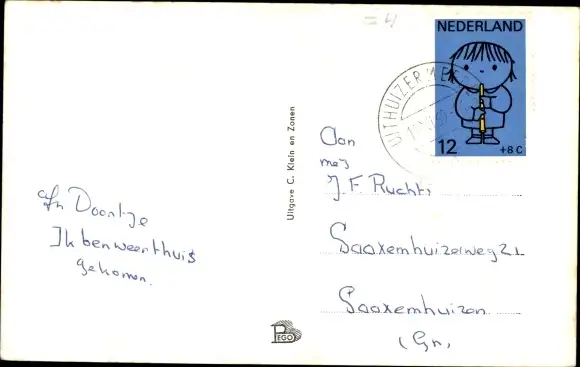 = 4
NEDERLAND
12 +8 C
UITHUIZERMEEDEN
Uitgave C. Klein en Zonen
Aan
mej
J F Ruchti
Saaxemhuizerweg 21
Saaxemhuizen
(Gr,
Afn Doontje
Ik ben weer thuis
gekomen.
BEGO